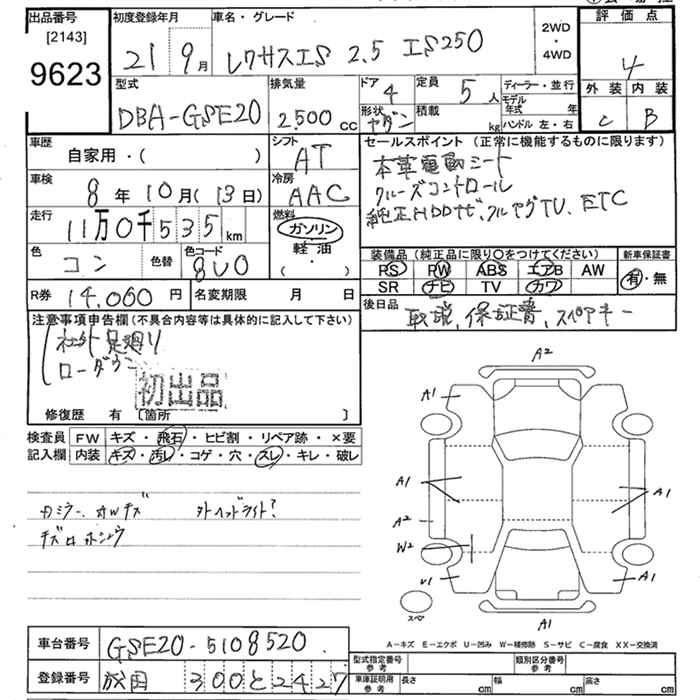 出品番号 [2143] 9623
初度登録年月 21 9月
車名・グレード レクサスIS 2.5 IS250
2WD・4WD
評価点 4
外装 C 内装 B
型式 DBA-GSE20
排気量 2,500cc
ドア 4 形状 セダン
定員 5人 積載 kg
ディーラー・並行
モデル年式 年
ハンドル 左・右
車歴 自家用・( )
シフト AT
車検 8年10月(13日)
冷房 AAC
走行 11万0千535km
燃料 ガソリン 軽油・
色 コン 色替 色コード 8U0
R券 14,060円 名変期限 月 日
セールスポイント(正常に機能するものに限ります)
本革電動シート
クルーズコントロール
純正HDDナビ、フルセグTV、ETC
装備品(純正品に限り○をつけてください)
PS PW ABS エアB AW
SR ナビ TV カワ
新車保証書 有・無
後日品 取説、保証書、スペアキー
注意事項申告欄(不具合内容等は具体的に記入して下さい)
社外足廻り
ローダウン
初出品
修復歴 有 〔箇所 〕
検査員記入欄
FW キズ・飛石・ヒビ割・リペア跡・×要
内装 キズ・汚レ・コゲ・穴・スレ・キレ・破レ
外ヘッドライト?
A2
A1
A1
A1
A2
W2
U1
A1
A1
スペア
A-キズ E-エクボ U-凹み W-補修跡 S-サビ C-腐食 XX-交換済
車台番号 GSE20-5108520
登録番号 300と2427
型式指定番号 参考 類別区分番号 参考
車庫証明用 参考 長さ cm 幅 cm 高さ cm